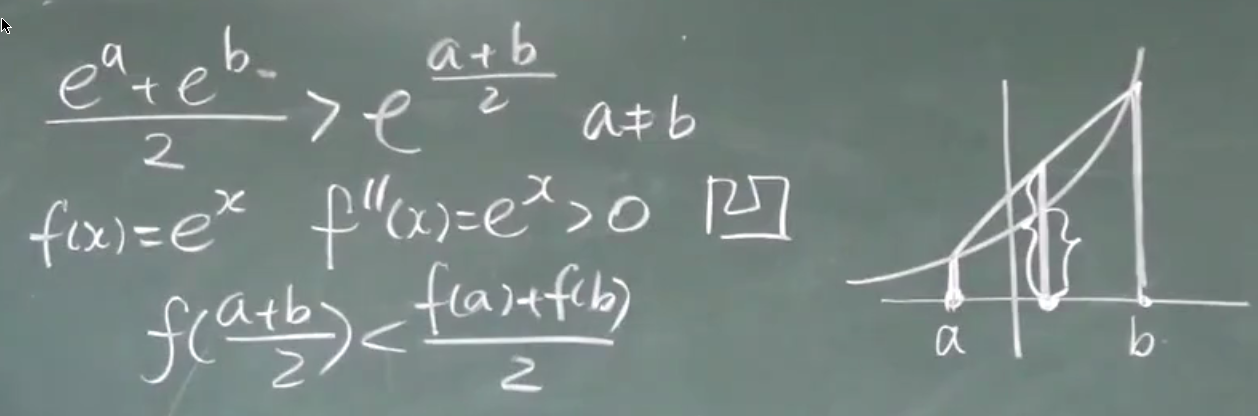 (e^a + e^b)/2 > e^((a+b)/2) a≠b
f(x)=e^x f''(x)=e^x>0 凹
f((a+b)/2)<(f(a)+f(b))/2
a b